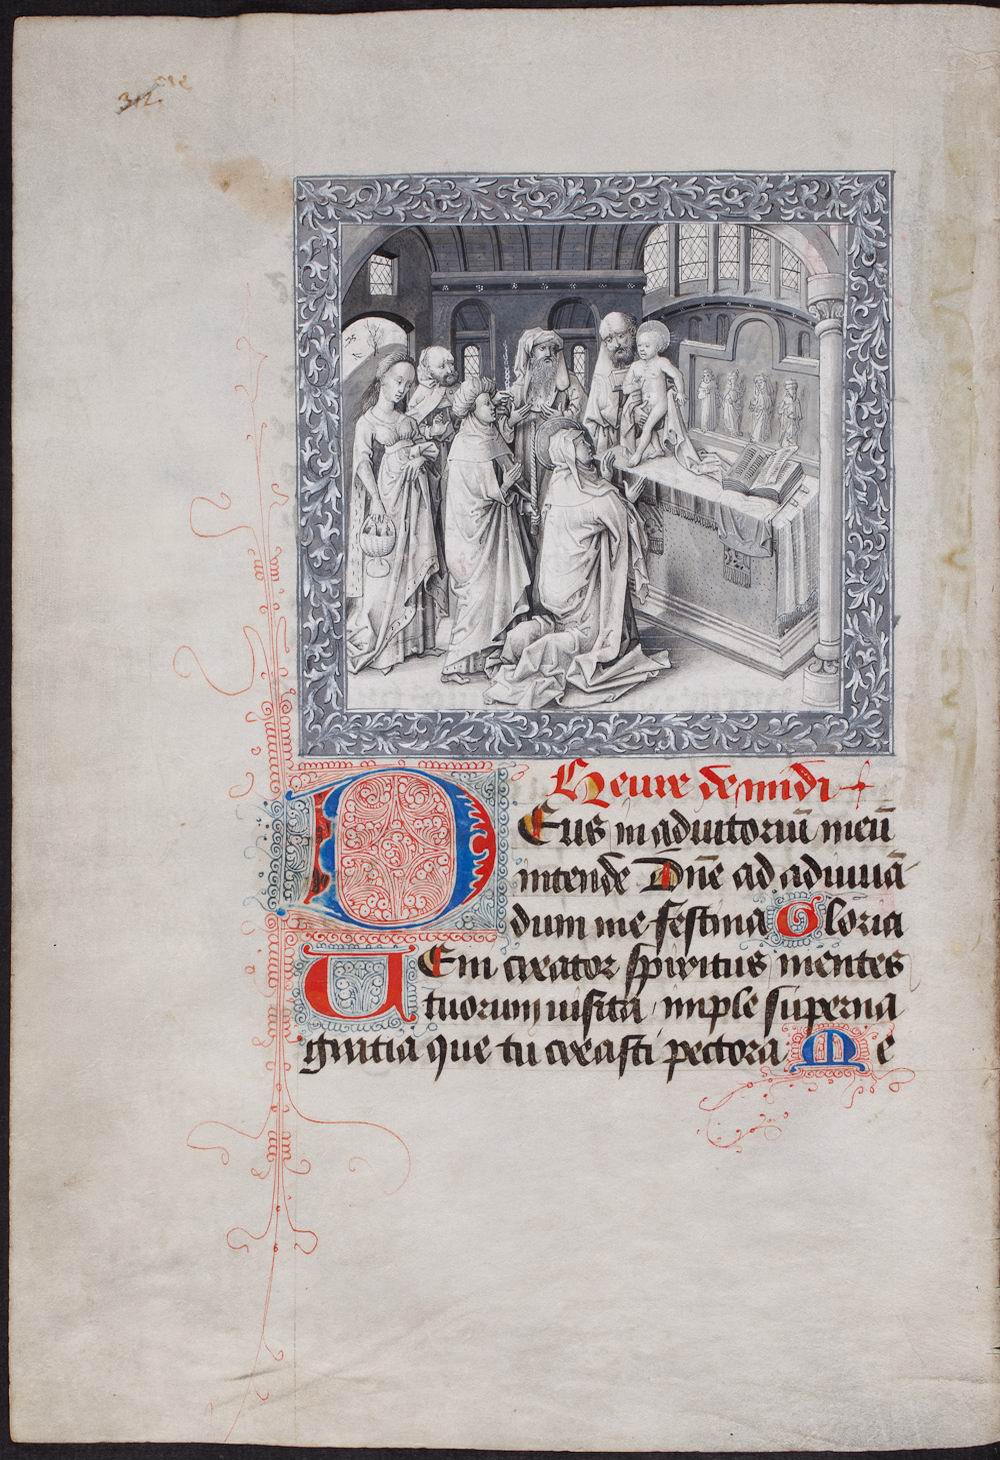 Heure de midi
Deus in adiutoriū meū
intende Dn̄e ad adiuuā
dum me festina Gloria
Ueni creator spiritus mentes
tuorum uisita imple superna
gratia que tu creasti pectora Me